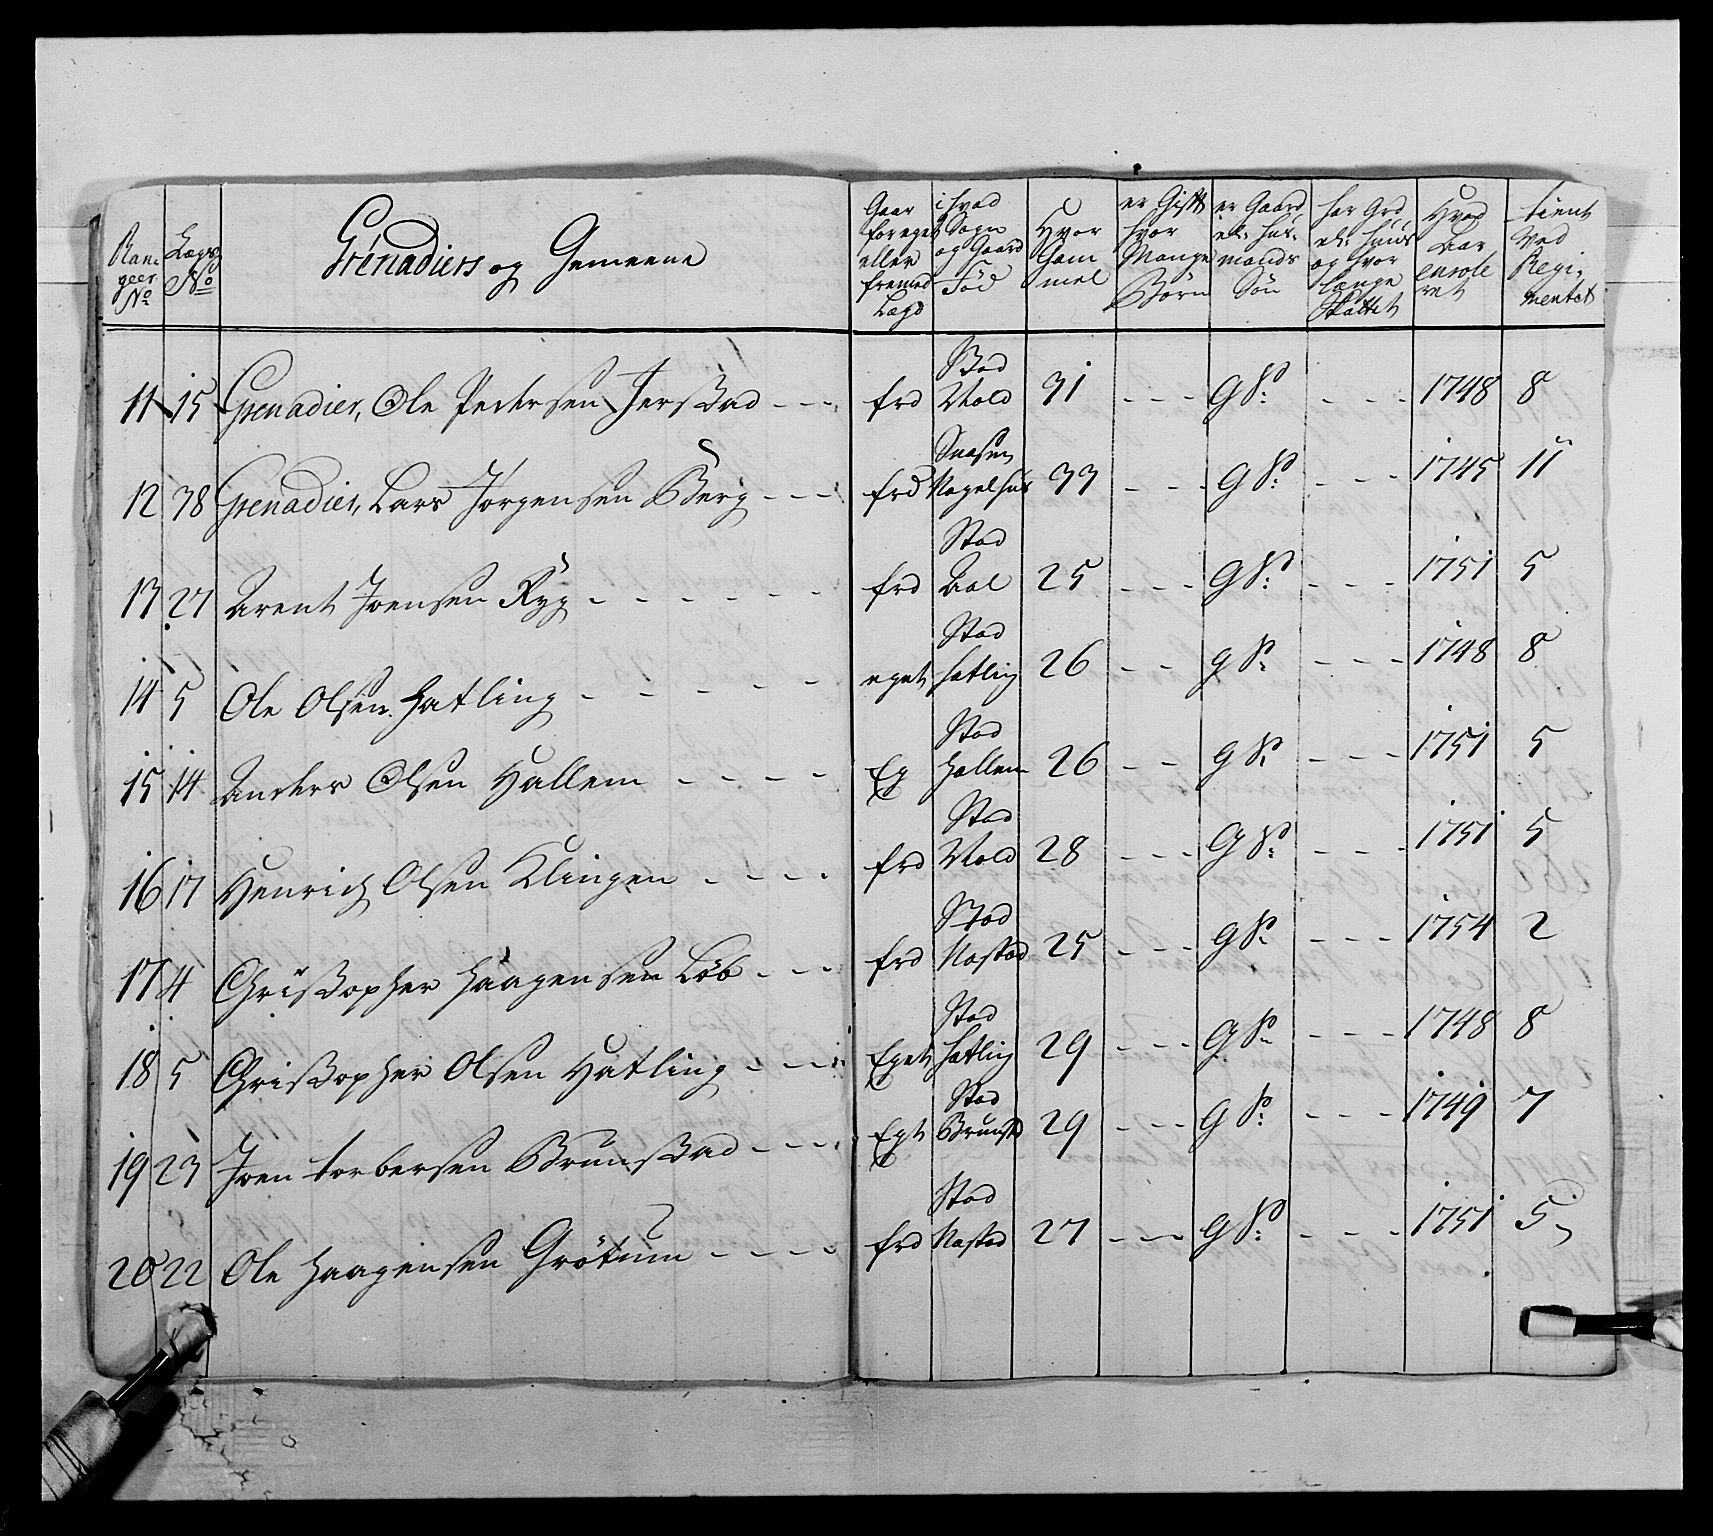 Ran¬
geer
No
Lægs
No
Grénadiers og Gemeene
Gaar
for eget
eller
fremed
Lægd
i hvad
Sogn
og Gaard
Fød
Hvor
Gam
mel
er Gift
hvor
Mange
Børn
er Gaard
el: hus-
mands
Søn
har Grd
el: huus
og hvor
længe
Skattet
Hvad
Aar
enrole
ret
tient
Ved
Regi-
mentet
11 15 Grenadier, Ole Pedersen Jerstad --- frd Stod Vold 31 --- G S: --- 1748 8
12 38 Grenadier, Lars Jørgensen Berg --- frd Snasen Vegelhus 33 --- G S: --- 1745 11
13 27 Arent Joensen Ryg ------ frd Stod Aal 25 --- G S: --- 1751 5
14 5 Ole Olsen Hatling ------ eget Stod Hatling 26 -- G S: --- 1748 8
15 14 Anders Olsen Hallem ---- Eg Stod Hallem 26 -- G S: --- 1751 5
16 17 Henrich Olsen Klingen ---- frd Stod Vold 28 --- G S: --- 1751 5
17 4 Christopher Haagensen Løb --- frd Stod Nostad 25 --- G S: --- 1754 2
18 5 Christopher Olsen Hatling --- Eget Stod Hatling 29 --- G S: --- 1748 8
19 23 Joen torbersen Brunstad --- Egt Stod Brunstd 29 --- G S: --- 1749 7
20 22 Ole Haagensen Grøtum ---- frd Stod Nostad 27 --- G S: --- 1751 5